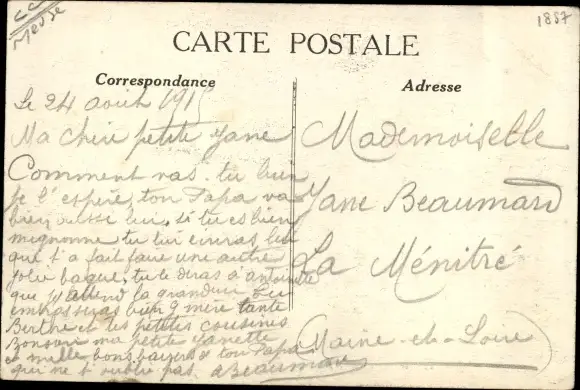 Meuse
1857
CARTE POSTALE
Correspondance
Adresse
Le 24 août 1915
Ma chère petite Jane
Comment vas-tu bien
je l'espère, ton Papa va
bien aussi lui, si tu es bien
mignonne tu lui écriras
que t'a fait faire une autre
jolie bague, tu le diras à Antoinette
que j'attend la grandeur
embrasseras bien mère tante
Berthe et les petites cousines
Bonsoir ma petite Janette
et mille bons baisers ton Papa
qui ne t'oublie pas ABeaumard
Mademoiselle
Jane Beaumard
La Ménitré
(Maine-et-Loire)